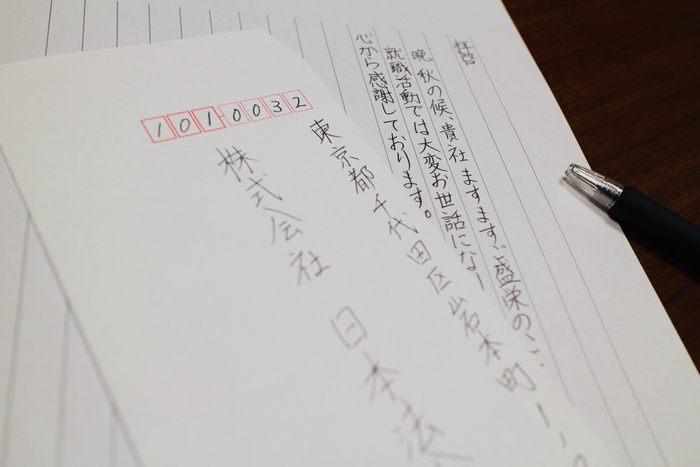 拝啓
晩秋の候、貴社ますますご盛栄のこ
就職活動では大変お世話にな
心から感謝しております。
1010032
東京都千代田区岩本町
株式会社 日本法